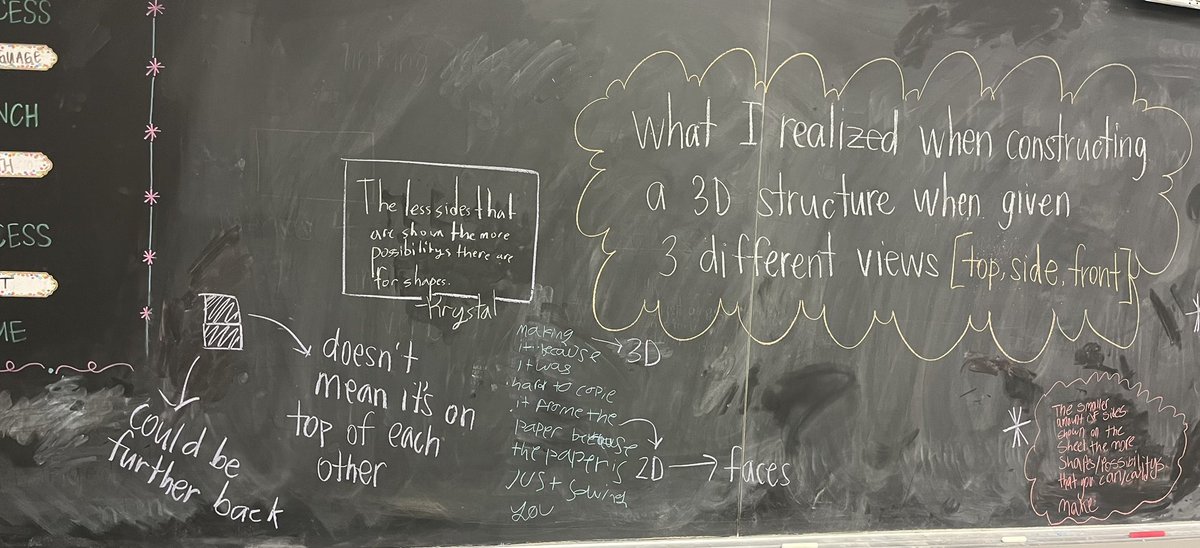 CESS
GUAGE
NCH
TH
CESS
T
ME
What I realized when constructing
a 3D structure when given
3 different views [top, side, front]
The less sides that
are shown the more
possibilitys there are
for shapes.
-Krystal
doesn't
mean it's on
top of each
other
could be
further back
making
it because
it was
hard to copie
it frome the
paper because
the paper is
just
you
3D
2D → faces
The smaller
amount of sides
shown on the
sheet the more
shapes/possibilitys
that you can
make